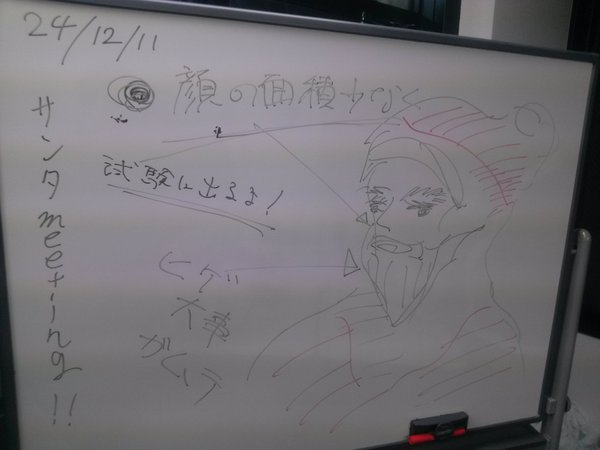 24/12/11
サンタmeeting!!
顔の面積少なく
試験に出るよ!
ヒゲが
大事